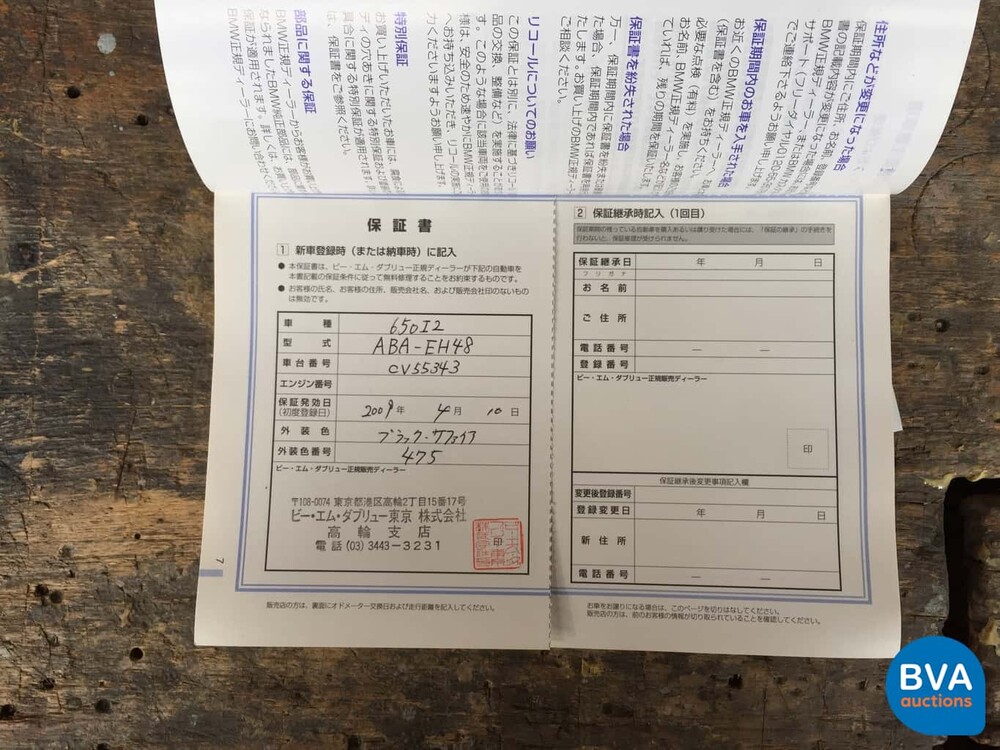 住所などが変更になった場合
保証期間内のお車を入手された場合
お近くのBMW正規ディーラーへ
保証書を紛失された場合
万一、保証期間内に保証書を紛失
た場合、保証期間内であれば保証書を
たします。お買い上げのBMW正規
ご相談ください。
リコールについてのお願い
この保証とは別に、法律に基づきリコール
品の交換、整備など）を実施すること
す。このような場合に該当車両をご使用の
様は、安全のため速やかにBMW正規ディー
へお持ち込みいただき、リコール
力くださいますようお願い申し上げます。
特別保証
お買い上げいただいたお車には、
ディの穴あきに関する特別保証および
具合に関する特別保証が適用されます。
は、保証書をご参照ください。
部品に関する保証
BMW正規ディーラーからお客様が
なられましたBMW純正部品には、
保証が適用されます。詳しくは、お
BMW正規ディーラーにお問い合わせ
保証書
1 新車登録時（または納車時）に記入
● 本保証書は、ビー・エム・ダブリュー正規ディーラーが下記の自動車を
本書記載の保証条件に従って無料修理することをお約束するものです。
● お客様の氏名、お客様の住所、販売会社名、および販売会社印のないもの
は無効です。
車種 650I2
型式 ABA-EH48
車台番号 CV55343
エンジン番号
保証発効日
(初度登録日) 2009年 4月 10日
外装色 ブラック・サファイア
外装色番号 475
ビー・エム・ダブリュー正規販売ディーラー
〒108-0074 東京都港区高輪2丁目15番17号
ビー・エム・ダブリュー東京 株式会社
高輪支店
電話 (03) 3443-3231
印
7
販売店の方は、裏面にオドメーター交換日および走行距離を記入してください。
2 保証継承時記入（1回目）
保証期間の残っている自動車を購入あるいは譲り受けた場合には、「保証の継承」の手続きを
行わないと、保証修理が受けられません。
保証継承日 年 月 日
フリガナ
お名前
ご住所
電話番号 — —
登録番号
ビー・エム・ダブリュー正規販売ディーラー
印
保証継承後変更事項記入欄
変更後登録番号
登録変更日 年 月 日
新住所
電話番号 — —
お車をお譲りになる場合は、このページを切りはなしてください。
販売店の方は、前のお客様の情報が切り取られていることを確認してください。
BVA
auctions